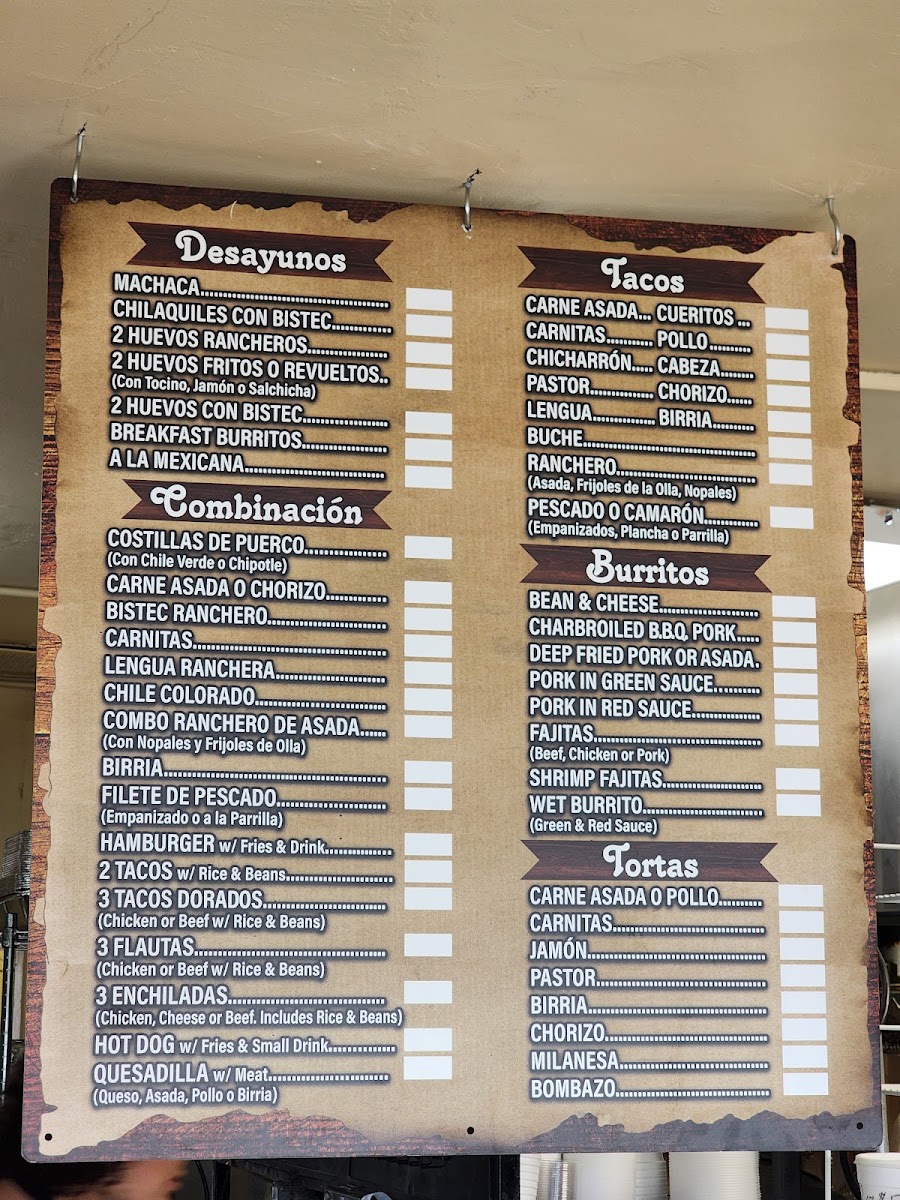 Desayunos
MACHACA.......................................
CHILAQUILES CON BISTEC.............
2 HUEVOS RANCHEROS.................
2 HUEVOS FRITOS O REVUELTOS..
(Con Tocino, Jamón o Salchicha)
2 HUEVOS CON BISTEC..................
BREAKFAST BURRITOS..................
A LA MEXICANA.............................
Combinación
COSTILLAS DE PUERCO.................
(Con Chile Verde o Chipotle)
CARNE ASADA O CHORIZO.............
BISTEC RANCHERO.........................
CARNITAS........................................
LENGUA RANCHERA.......................
CHILE COLORADO...........................
COMBO RANCHERO DE ASADA......
(Con Nopales y Frijoles de Olla)
BIRRIA..............................................
FILETE DE PESCADO.......................
(Empanizado o a la Parrilla)
HAMBURGER w/ Fries & Drink..............
2 TACOS w/ Rice & Beans......................
3 TACOS DORADOS.........................
(Chicken or Beef w/ Rice & Beans)
3 FLAUTAS.......................................
(Chicken or Beef w/ Rice & Beans)
3 ENCHILADAS................................
(Chicken, Cheese or Beef. Includes Rice & Beans)
HOT DOG w/ Fries & Small Drink..............
QUESADILLA w/ Meat.........................
(Queso, Asada, Pollo o Birria)
Tacos
CARNE ASADA... CUERITOS ...
CARNITAS........... POLLO..........
CHICHARRÓN..... CABEZA........
PASTOR............... CHORIZO......
LENGUA.............. BIRRIA..........
BUCHE.....................................
RANCHERO..............................
(Asada, Frijoles de la Olla, Nopales)
PESCADO O CAMARÓN............
(Empanizados, Plancha o Parrilla)
Burritos
BEAN & CHEESE......................
CHARBROILED B.B.Q. PORK.....
DEEP FRIED PORK OR ASADA.
PORK IN GREEN SAUCE..........
PORK IN RED SAUCE...............
FAJITAS...................................
(Beef, Chicken or Pork)
SHRIMP FAJITAS......................
WET BURRITO..........................
(Green & Red Sauce)
Tortas
CARNE ASADA O POLLO..........
CARNITAS.................................
JAMÓN......................................
PASTOR.....................................
BIRRIA.......................................
CHORIZO...................................
MILANESA................................
BOMBAZO.................................